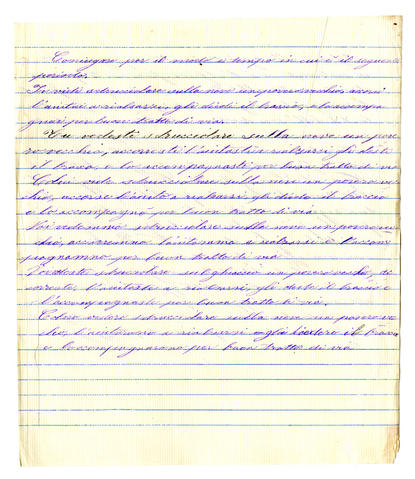 Coniugare per il modo e tempo in cui è il seguente
periodo.
Io vidi sdrucciolare sulla neve un povero vecchio, accorsi
l'aiutai a rialzarsi, gli diedi il braccio, e lo accompa
gnai per buon tratto di via.
Tu vedesti sdrucciolare sulla neve un pove
ro vecchio, accorresti l'aiutasti a rialzarsi gli desti
il braccio, e lo accompagnasti per buon tratto di via
Colui vide sdrucciolare sulla neve un povero vec
chio, accorse l'aiutò a rialzarsi, gli diede il braccio
e lo accompagnò per buon tratto di via
Noi vedemmo sdrucciolare sulla neve un povero vec
chio, accorremmo l'aiutammo a rialzarsi e l'accom
pagnammo per buon tratto di via
Voi vedeste sdrucciolare sul ghiaccio un povero vecchio,
l'aiutaste a rialzarsi, gli deste il braccio e
l'accompagnaste per buon tratto di via.
Coloro videro sdrucciolare sulla neve un povero vec
chio, l'aiutarono a rialzarsi e gli diedero il braccio
e lo accompagnarono per buon tratto di via